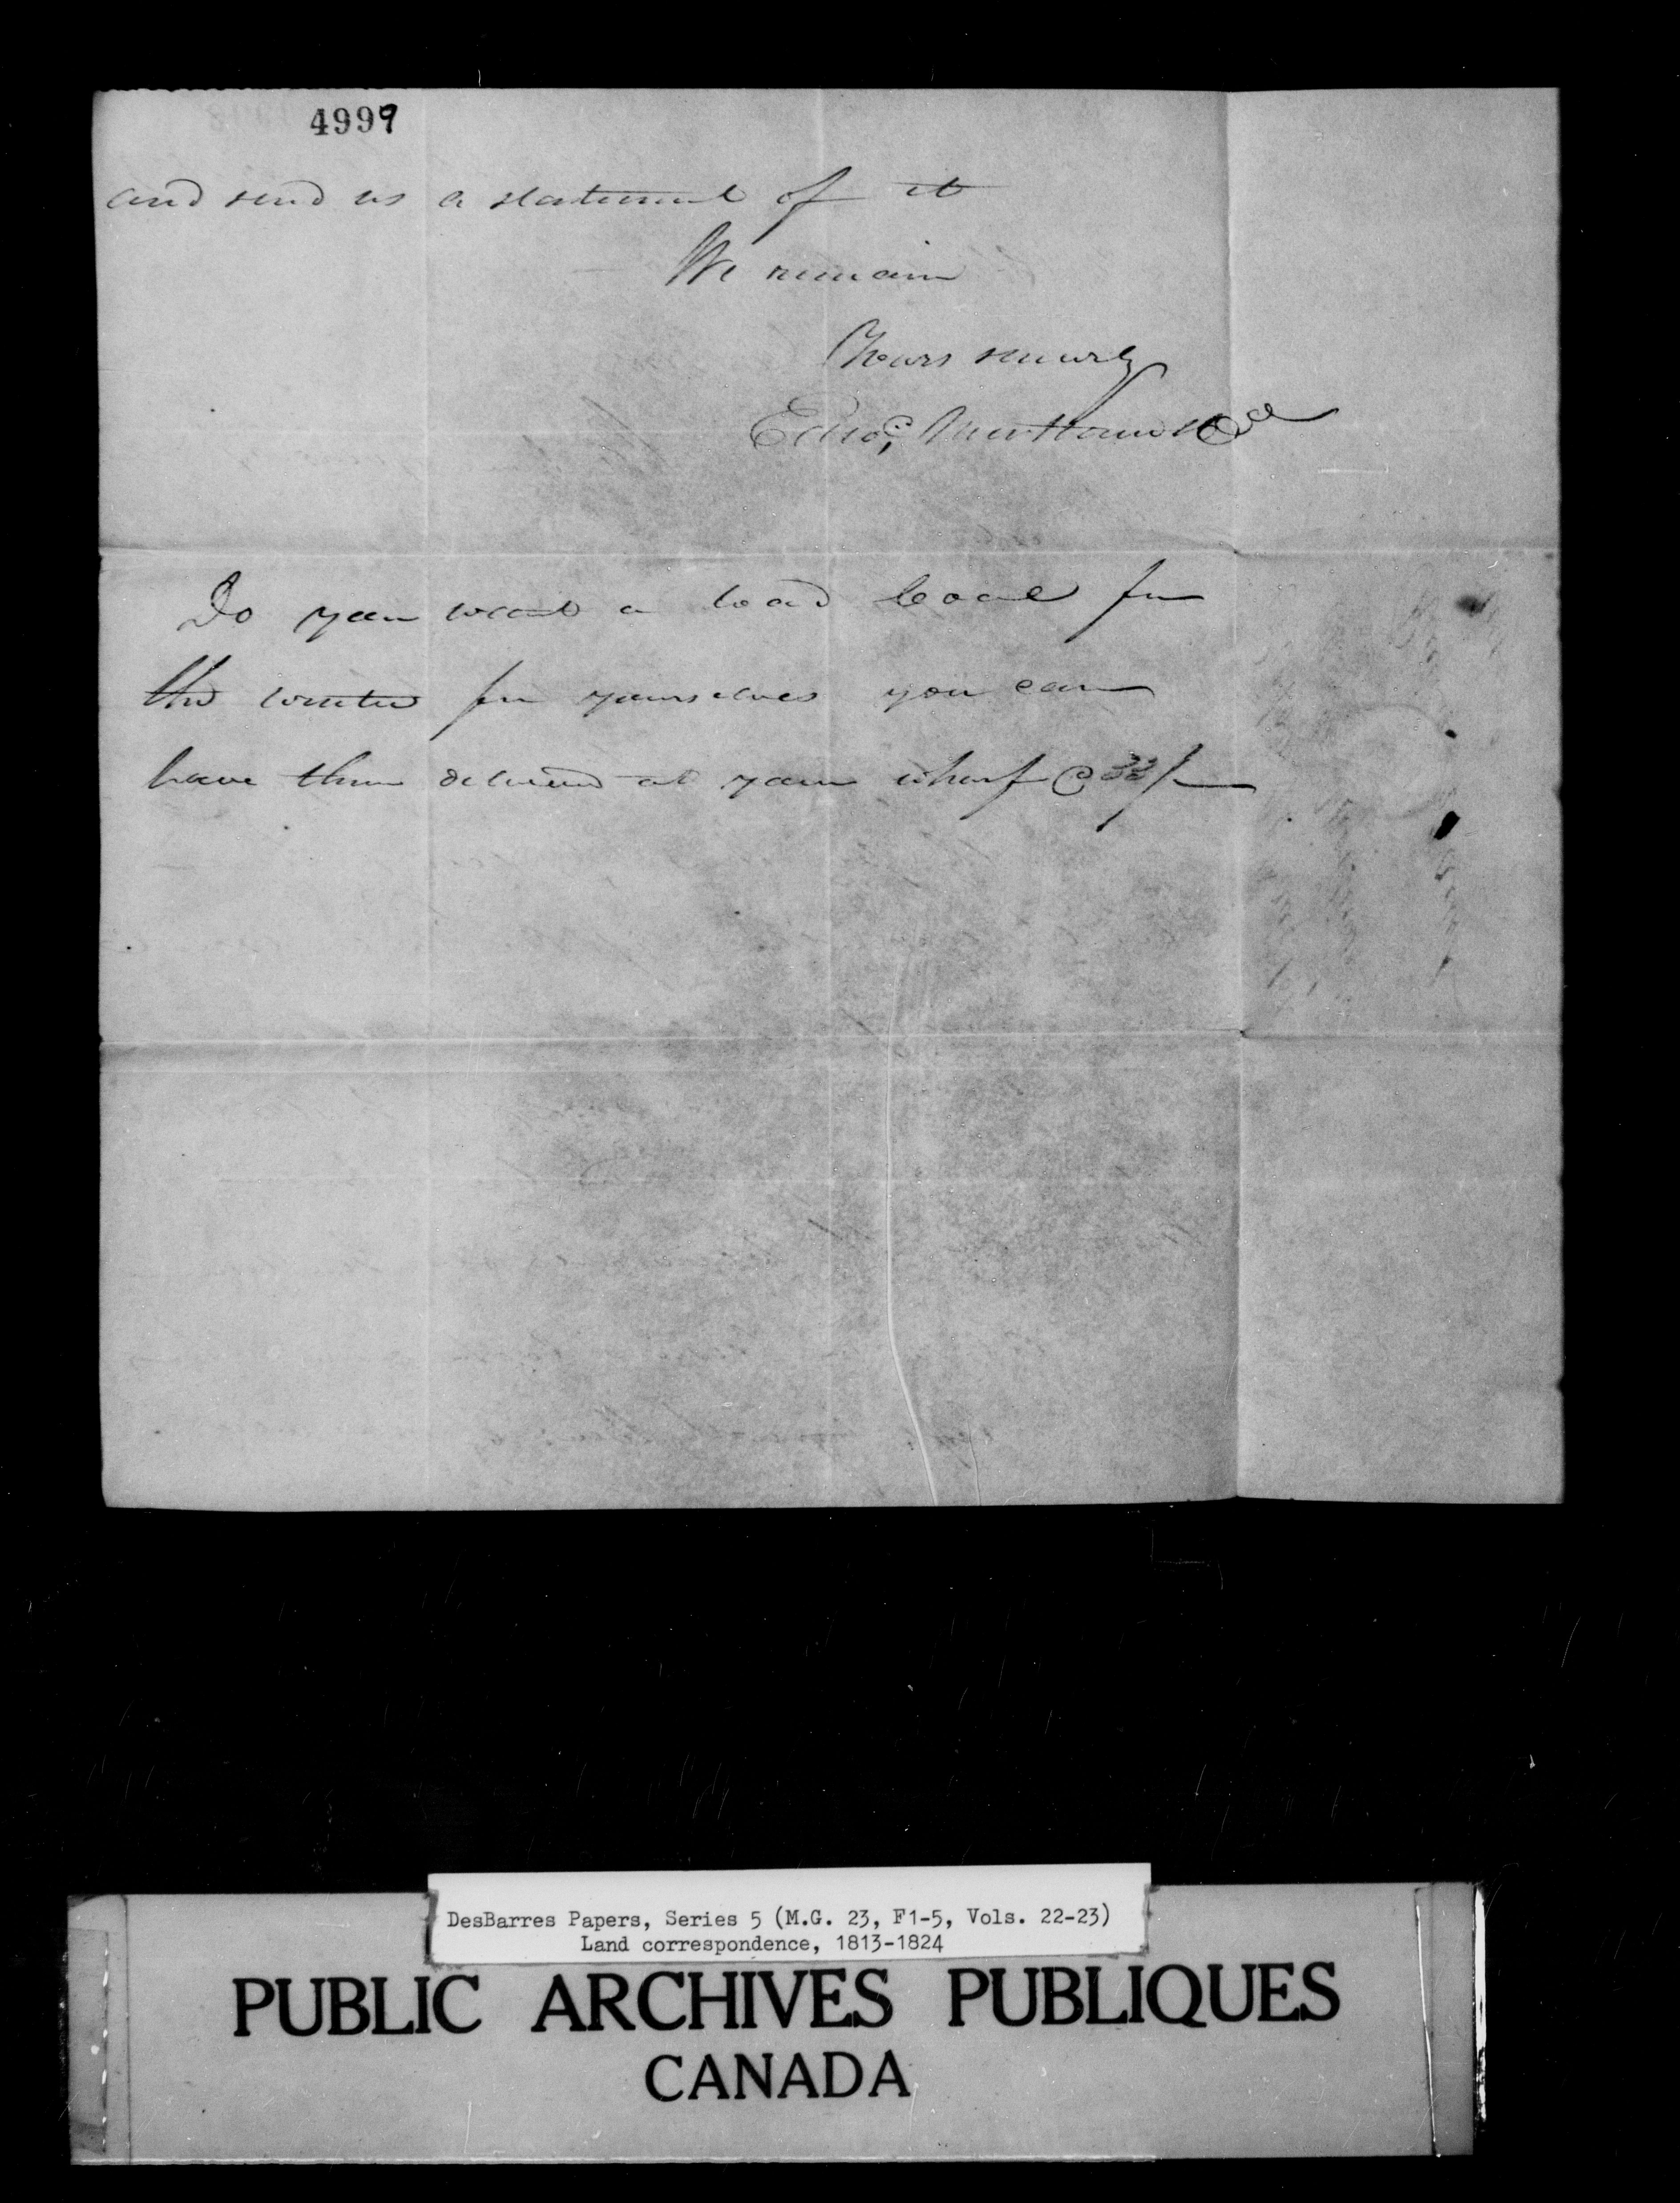 4999
and send us a statement of it
We remain
Yours sincerely
Do you want a load Coal for
the winter for yourselves you can
have them delivered at your wharf @ 32/
DesBarres Papers, Series 5 (M.G. 23, F1-5, Vols. 22-23)
Land correspondence, 1813-1824
PUBLIC ARCHIVES PUBLIQUES
CANADA